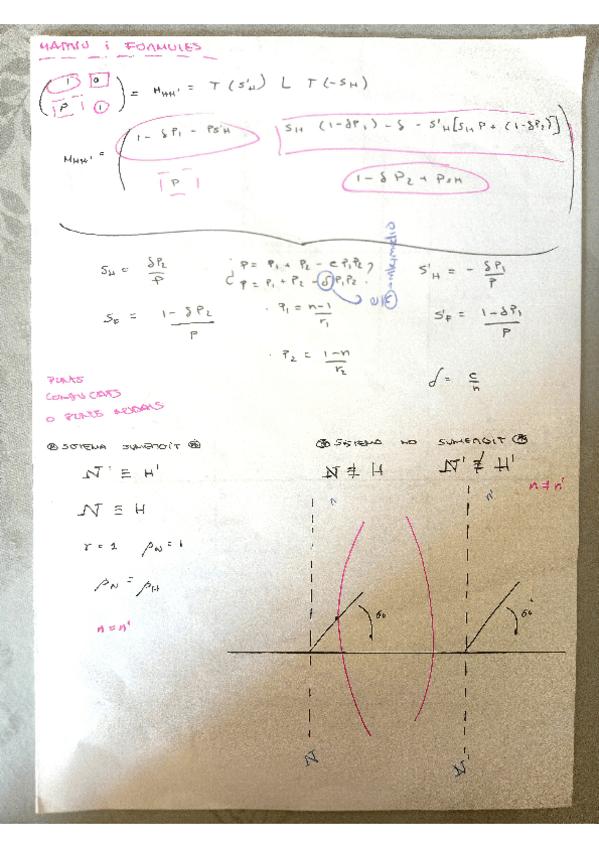 MATRIU i FORMULES
( 1 0 P 1 ) = M_HH' = T (S'_H) L T (-S_H)
M_HH' = ( 1 - δP_1 - PS'_H S_H (1-δP_1) - δ - S'_H [S_H P + (1-δP_2)]
P 1 - δP_2 + PS_H )
S_H = δP_2 / P
¿ P = P_1 + P_2 - e P_1 P_2 ?
¿ P = P_1 + P_2 - δ P_1 P_2 .
e/n
S'_H = - δP_1 / P
S_F = 1 - δP_2 / P
· P_1 = n-1 / r_1
S'_F = 1 - δP_1 / P
· P_2 = 1-n / r_2
δ = e / n
PUNTS
CONJUGATS
O PUNTS NODALS
SISTEMA SUMERGIT
SISTEMA NO SUMERGIT
N' ≡ H'
N ≢ H
N' ≢ H'
n ≠ n'
N ≡ H
n
n'
γ = 1 β_N = 1
β_N = β_H
σ_o
σ_o'
n = n'
N
N'